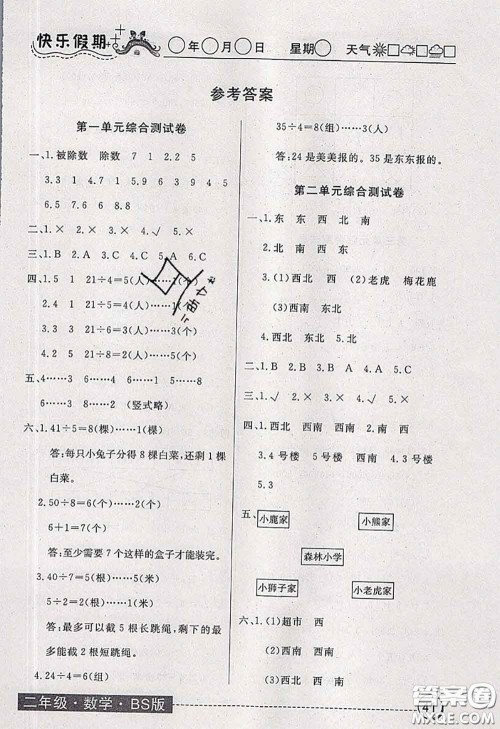 快乐假期 ○年○月○日 星期○ 天气□□□□
参考答案
第一单元综合测试卷
一、1.被除数 除数 7 1 2.2 5
3.3 1 4.7 1 5.9 6 3 9 4 5
6.5 7.6 8.8
二、1.× 2.× 3.√ 4.× 5.×
三、1.B 2.A 3.C 4.C 5.A 6.C
四、1.5 1 21÷4=5(人)……1(人)
2.4 1 21÷5=4(个)……1(个)
3.5 1 21÷6=3(人)……3(个)
4.2 5 21÷8=2(个)……5(个)
五、4……3 4……6 1……5 1……8
6……2 8……2 (竖式略)
六、1.41÷5=8(棵)……1(棵)
答:每只小兔子分得8棵白菜,还剩1棵
白菜。
2.50÷8=6(个)……2(个)
6+1=7(个)
答:至少需要7个这样的盒子才能装完。
3.40÷7=5(米)……5(米)
5÷2=2(根)……1(米)
答:最多可以截5根长跳绳,剩下的最
多能截2根短跳绳。
4.24÷4=6(组)
35÷4=8(组)……3(人)
答:24是美美报的。35是东东报的。
第二单元综合测试卷
一、1.东 东 西 北 南
2.北 南 西 东
3.(1)西北 西 (2)老虎 梅花鹿
(3)西南 东北
4.西北 东北 西南 东南
二、1.C 2.B 3.B 4.A 5.C
三、1.× 2.√ 3.√ 4.× 5.×
四、1.西北 西南 西 南 西南
2.西北 东南 3.4号楼 4.3号楼
5.3
五、小鹿家 小熊家
森林小学
小狮子家 小老虎家
六、1.(1)超市 西
(2)西南 东北
(3)西北 西南
二年级·数学·BS版
41
答案圈
MXQE.COM